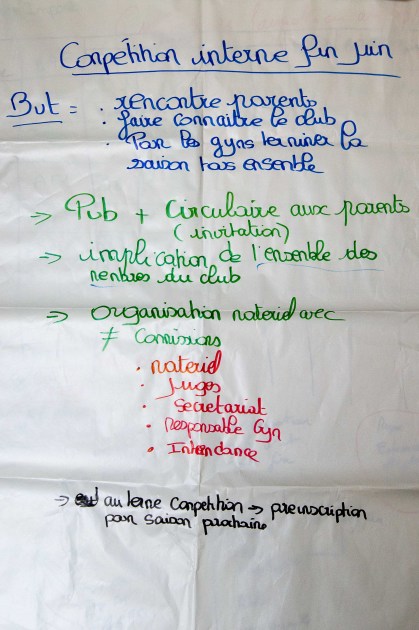 Compétition interne fin juin
But = . rencontre parents
. faire connaitre le club
. Pour les gyms terminer la
saison tous ensemble
→ Pub + Circulaire aux parents
(invitation)
→ implication de l'ensemble des
membres du club
→ organisation materiel avec
≠ Comissions
. materiel
. Juges
. Secretariat
. Responsable Gym
. Intendance
→ au terme Competition → preinscription
pour saison prochaine